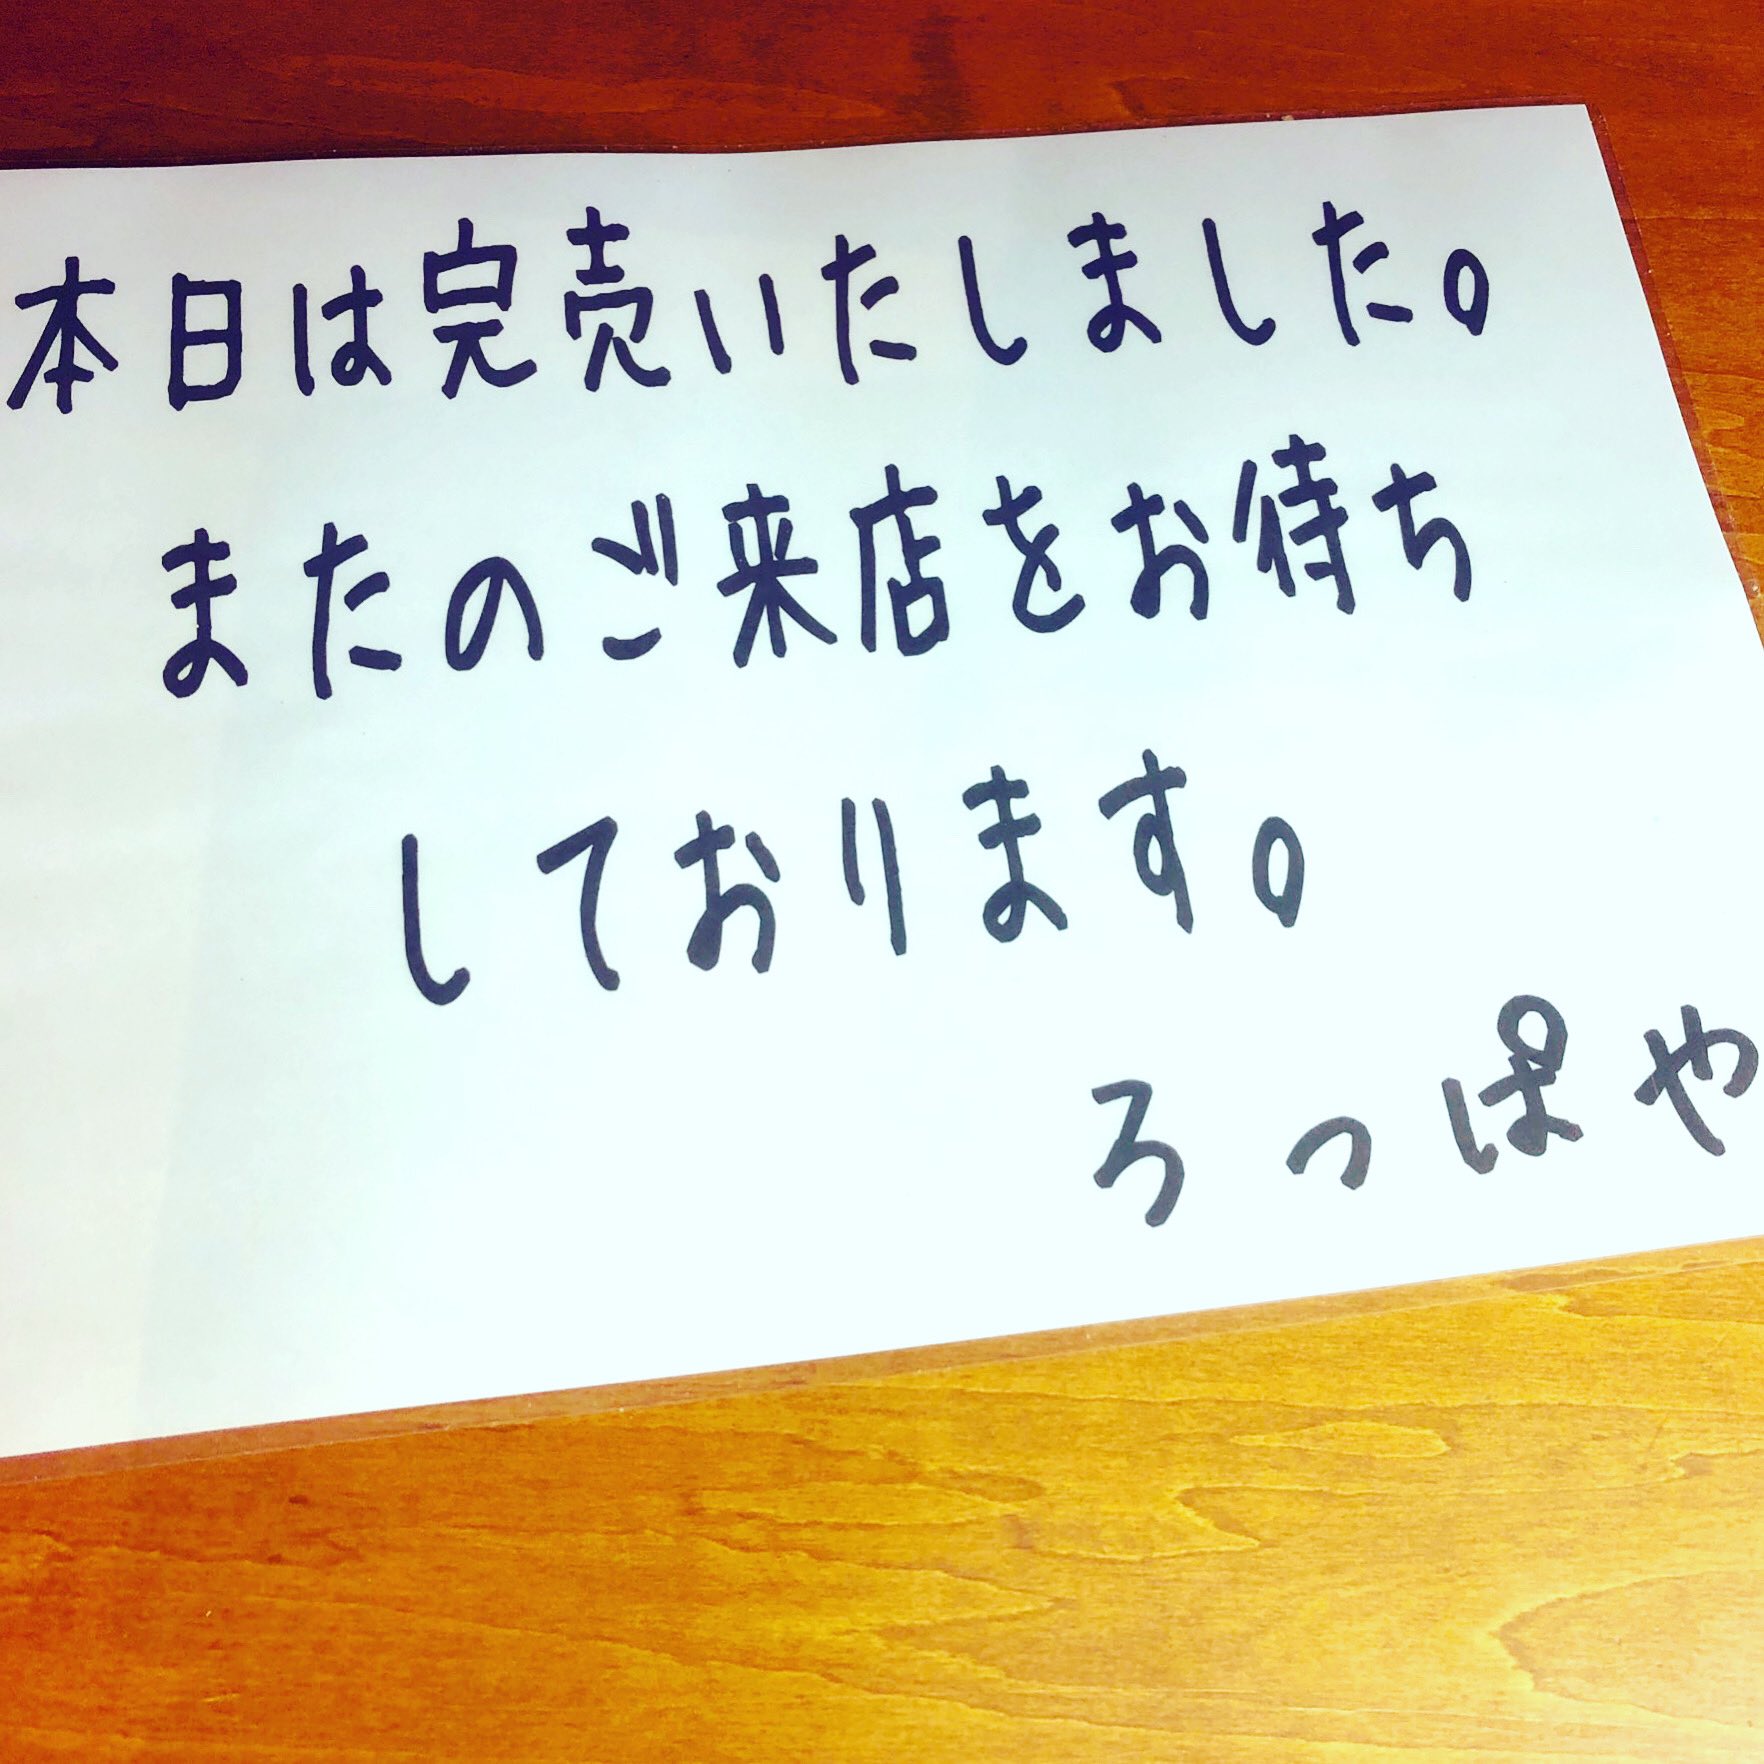 本日は完売いたしました。
またのご来店をお待ち
しております。
ろっぱや